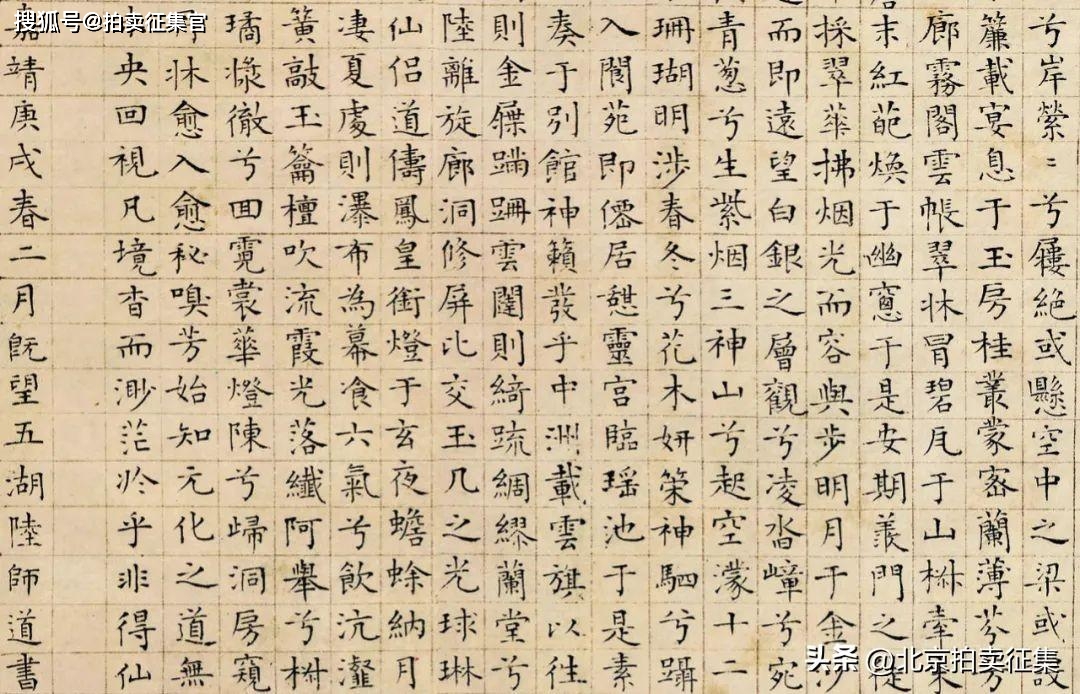 兮岸縈〻兮屨絕或懸空中之梁或設
簾載宴息于玉房桂叢蒙密蘭薄芬芳
廊霧閣雲帳翠牀冒碧瓦于山樹牽
末紅葩煥于幽窻于是安期羨門之
採翠華拂烟光而容與步明月于金沙
而即遠望白銀之層觀兮凌沓嶂兮宛
青葱兮生紫烟三神山兮起空濛十二
珊瑚明涉春冬兮花木妍策神駟兮躡
入閬苑即僊居憇靈宮臨瑶池于是素
奏于別館神籟發乎中洲載雲旗以往
則金屧蹒跚雲闥則綺疏綢繆蘭堂兮
陸離旋廊洞修屏比交玉几之光球琳
仙侶道儔鳳皇銜燈于玄夜蟾蜍納月
凄夏處則瀑布為幕食六氣兮飲沆瀣
簧敲玉籥檀吹流霞光落纖阿舉兮樹
璚漿徹兮回霓裳華燈陳兮歸洞房窺
牀愈入愈秘嗅芳始知元化之道無
央回視凡境杳而渺茫於乎非得仙
嘉靖庚戌春二月既望五湖陸師道書
搜狐号@拍卖征集官
头条 @北京拍卖征集